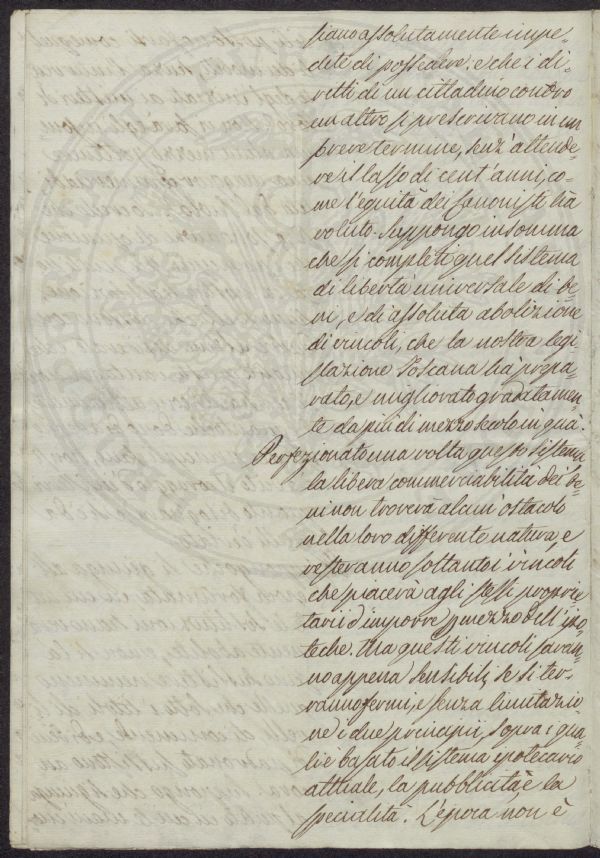 siano assolutamente impe-
dite di possedere: e che i di-
ritti di un cittadino contro
un altro si prescrivano in un
breve termine, senz' attende-
re il lasso di cent' anni, co-
me l'equità dei Canonisti ha
voluto. Suppongo insomma
che si completi quel sistema
di libertà universale di be-
ni, e di assoluta abolizione
di vincoli, che la nostra legi-
slazione Toscana ha prepa-
rato, e migliorato gradatamen-
te da più di mezzo secolo in quà.
Perfezionato una volta questo sistema
la libera commerciabilità dei be-
ni non troverà alcun' ostacolo
nella loro differente natura, e
resteranno soltanto i vincoli
che piacerà agli stessi proprie-
tarj d'imporre p mezzo dell' ipo-
teche. Ma questi vincoli saran-
no appena sensibili, se si ter-
ranno fermi, e senza limitazio-
ne i due principii, sopra i qua-
li è basato il sistema ipotecario
attuale, la pubblicità e la
specialità. L'epoca non è